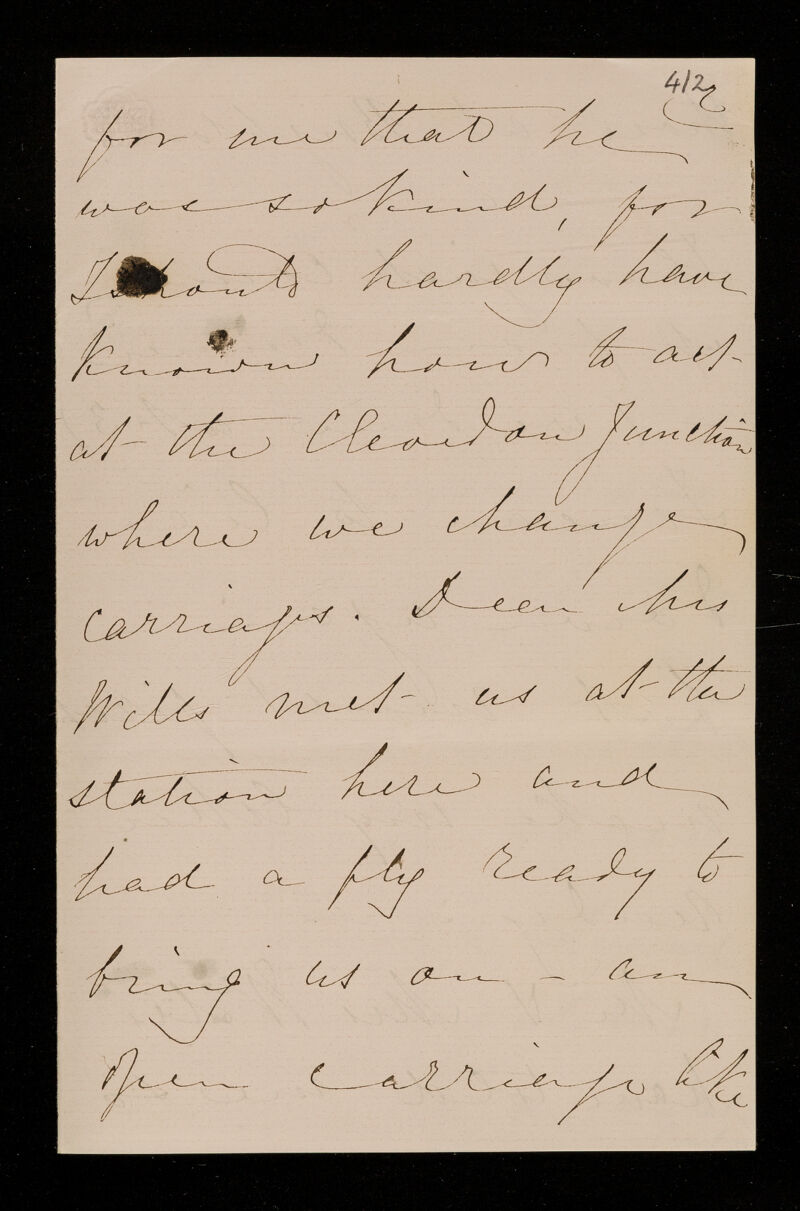 4/2
for me that he
was so kind, for
I should hardly have
known how to act
at the Clevedon Junction
where we change
carriages. Dear Mrs
Wills met us at the
station here and
had a fly ready to
bring us on - an
open carriage like